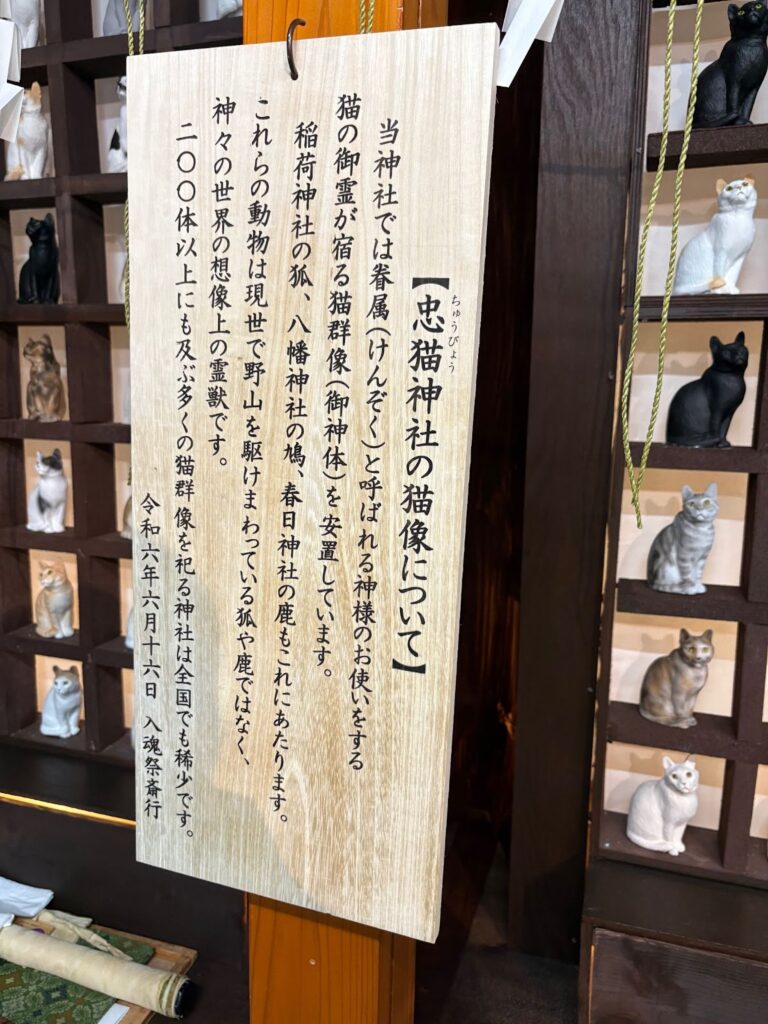 【忠猫神社の猫像について】
ちゅうびょう
当神社では眷属(けんぞく)と呼ばれる神様のお使いをする
猫の御霊が宿る猫群像(御神体)を安置しています。
稲荷神社の狐、八幡神社の鳩、春日神社の鹿もこれにあたります。
これらの動物は現世で野山を駆けまわっている狐や鹿ではなく、
神々の世界の想像上の霊獣です。
二〇〇体以上にも及ぶ多くの猫群像を祀る神社は全国でも稀少です。
令和六年六月十六日 入魂祭斎行